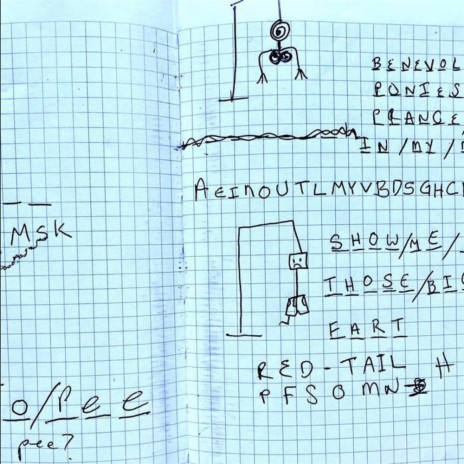 MSK
o/Pee
pee?
BENEVOL
PONIES
PRANCE
IN/MY/
AEINOUTLMYVBDSGHC
SHOW/ME/
THOSE/BIG
EART
RED-TAIL H
PFSOMN